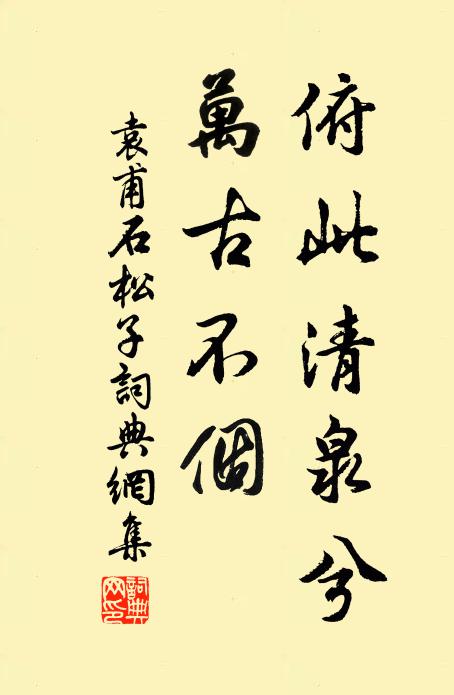 俯此清泉兮
萬古不個
袁甫石松子詞典網集
詞典網印